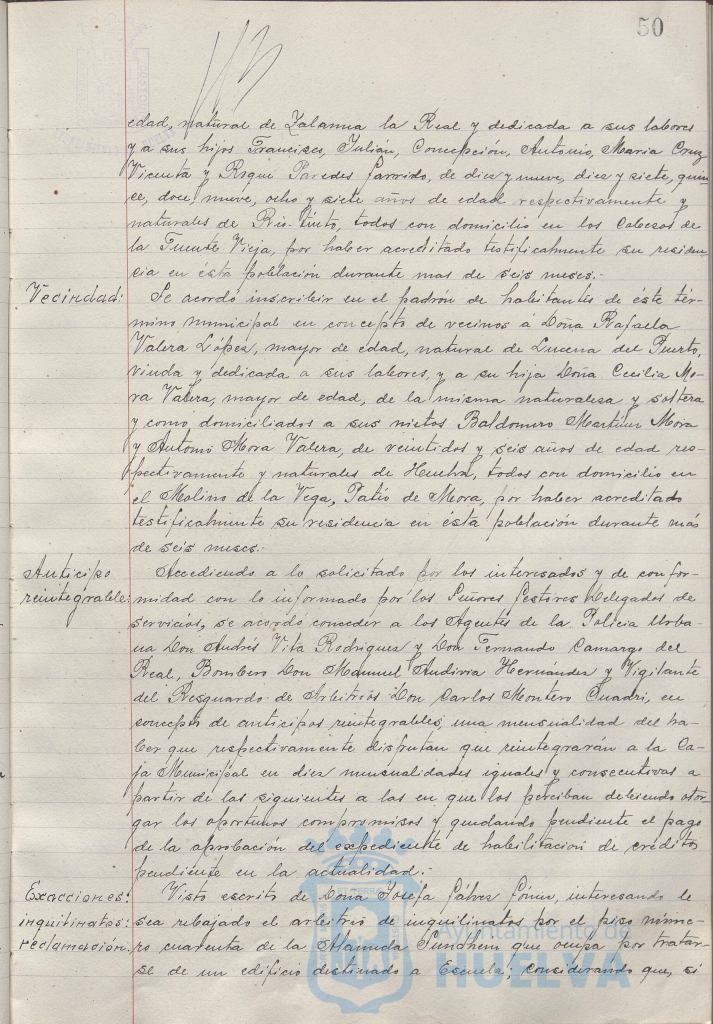 50
edad, natural de Zalamea la Real y dedicada a sus labores
y a sus hijos Francisco, Julián, Concepción, Antonio, Maria Cruz
Vicenta y Roque Paredes Garrido, de diez y nueve, diez y siete, quin-
ce, doce, nueve, ocho y siete años de edad respectivamente y
naturales de Rio-tinto, todos con domicilio en los Cabezos de
la Fuente Vieja, por haber acreditado testificalmente su residen-
cia en ésta población durante mas de seis meses.-
Vecindad: Se acordó inscribir en el padrón de habitantes de éste tér-
mino municipal en concepto de vecinos á Doña Rafaela
Valera López, mayor de edad, natural de Lucena del Puerto,
viuda y dedicada a sus labores, y a su hija Doña Cecilia Mo-
ra Valera, mayor de edad, de la misma naturaleza y soltera
y como domiciliados a sus nietos Baldomero Martín Mora
y Antonio Mora Valera, de veintidos y seis años de edad res-
pectivamente y naturales de Huelva, todos con domicilio en
el Molino de la Vega, Patio de Mora, por haber acreditado
testificalmente su residencia en ésta población durante más
de seis meses.-
Anticipo Accediendo a lo solicitado por los interesados y de confor-
reintegrable: midad con lo informado por los Señores Gestores Delegados de
servicios, se acordó conceder a los Agentes de la Policia Urba-
na Don Andrés Vita Rodriguez y Don Fernando Camargo del
Real, Bombero Don Manuel Hernández y Vigilante
del Resguardo de Arbitrios Don Carlos Montero Cuadri, en
concepto de anticipos reintegrables, una mensualidad del ha-
ber que respectivamente disfrutan que reintegrarán a la Ca-
ja Municipal en diez mensualidades iguales y consecutivas a
partir de las siguientes a las en que los perciban debiendo otor-
gar los oportunos compromisos y quedando pendiente el pago
de la aprobación del expediente de habilitacion de créditos
pendiente en la actualidad.-
Exacciones: Visto escrito de Doña Josefa Gálvez Gómez, interesando le
inquilinatos: sea rebajado el arbitrio de inquilinatos por el piso núme-
reclamación. ro cuarenta de la Alameda Sundhein que ocupa por tratar-
se de un edificio destinado a Escuela; considerando que, si
Ayuntamiento de
HUELVA